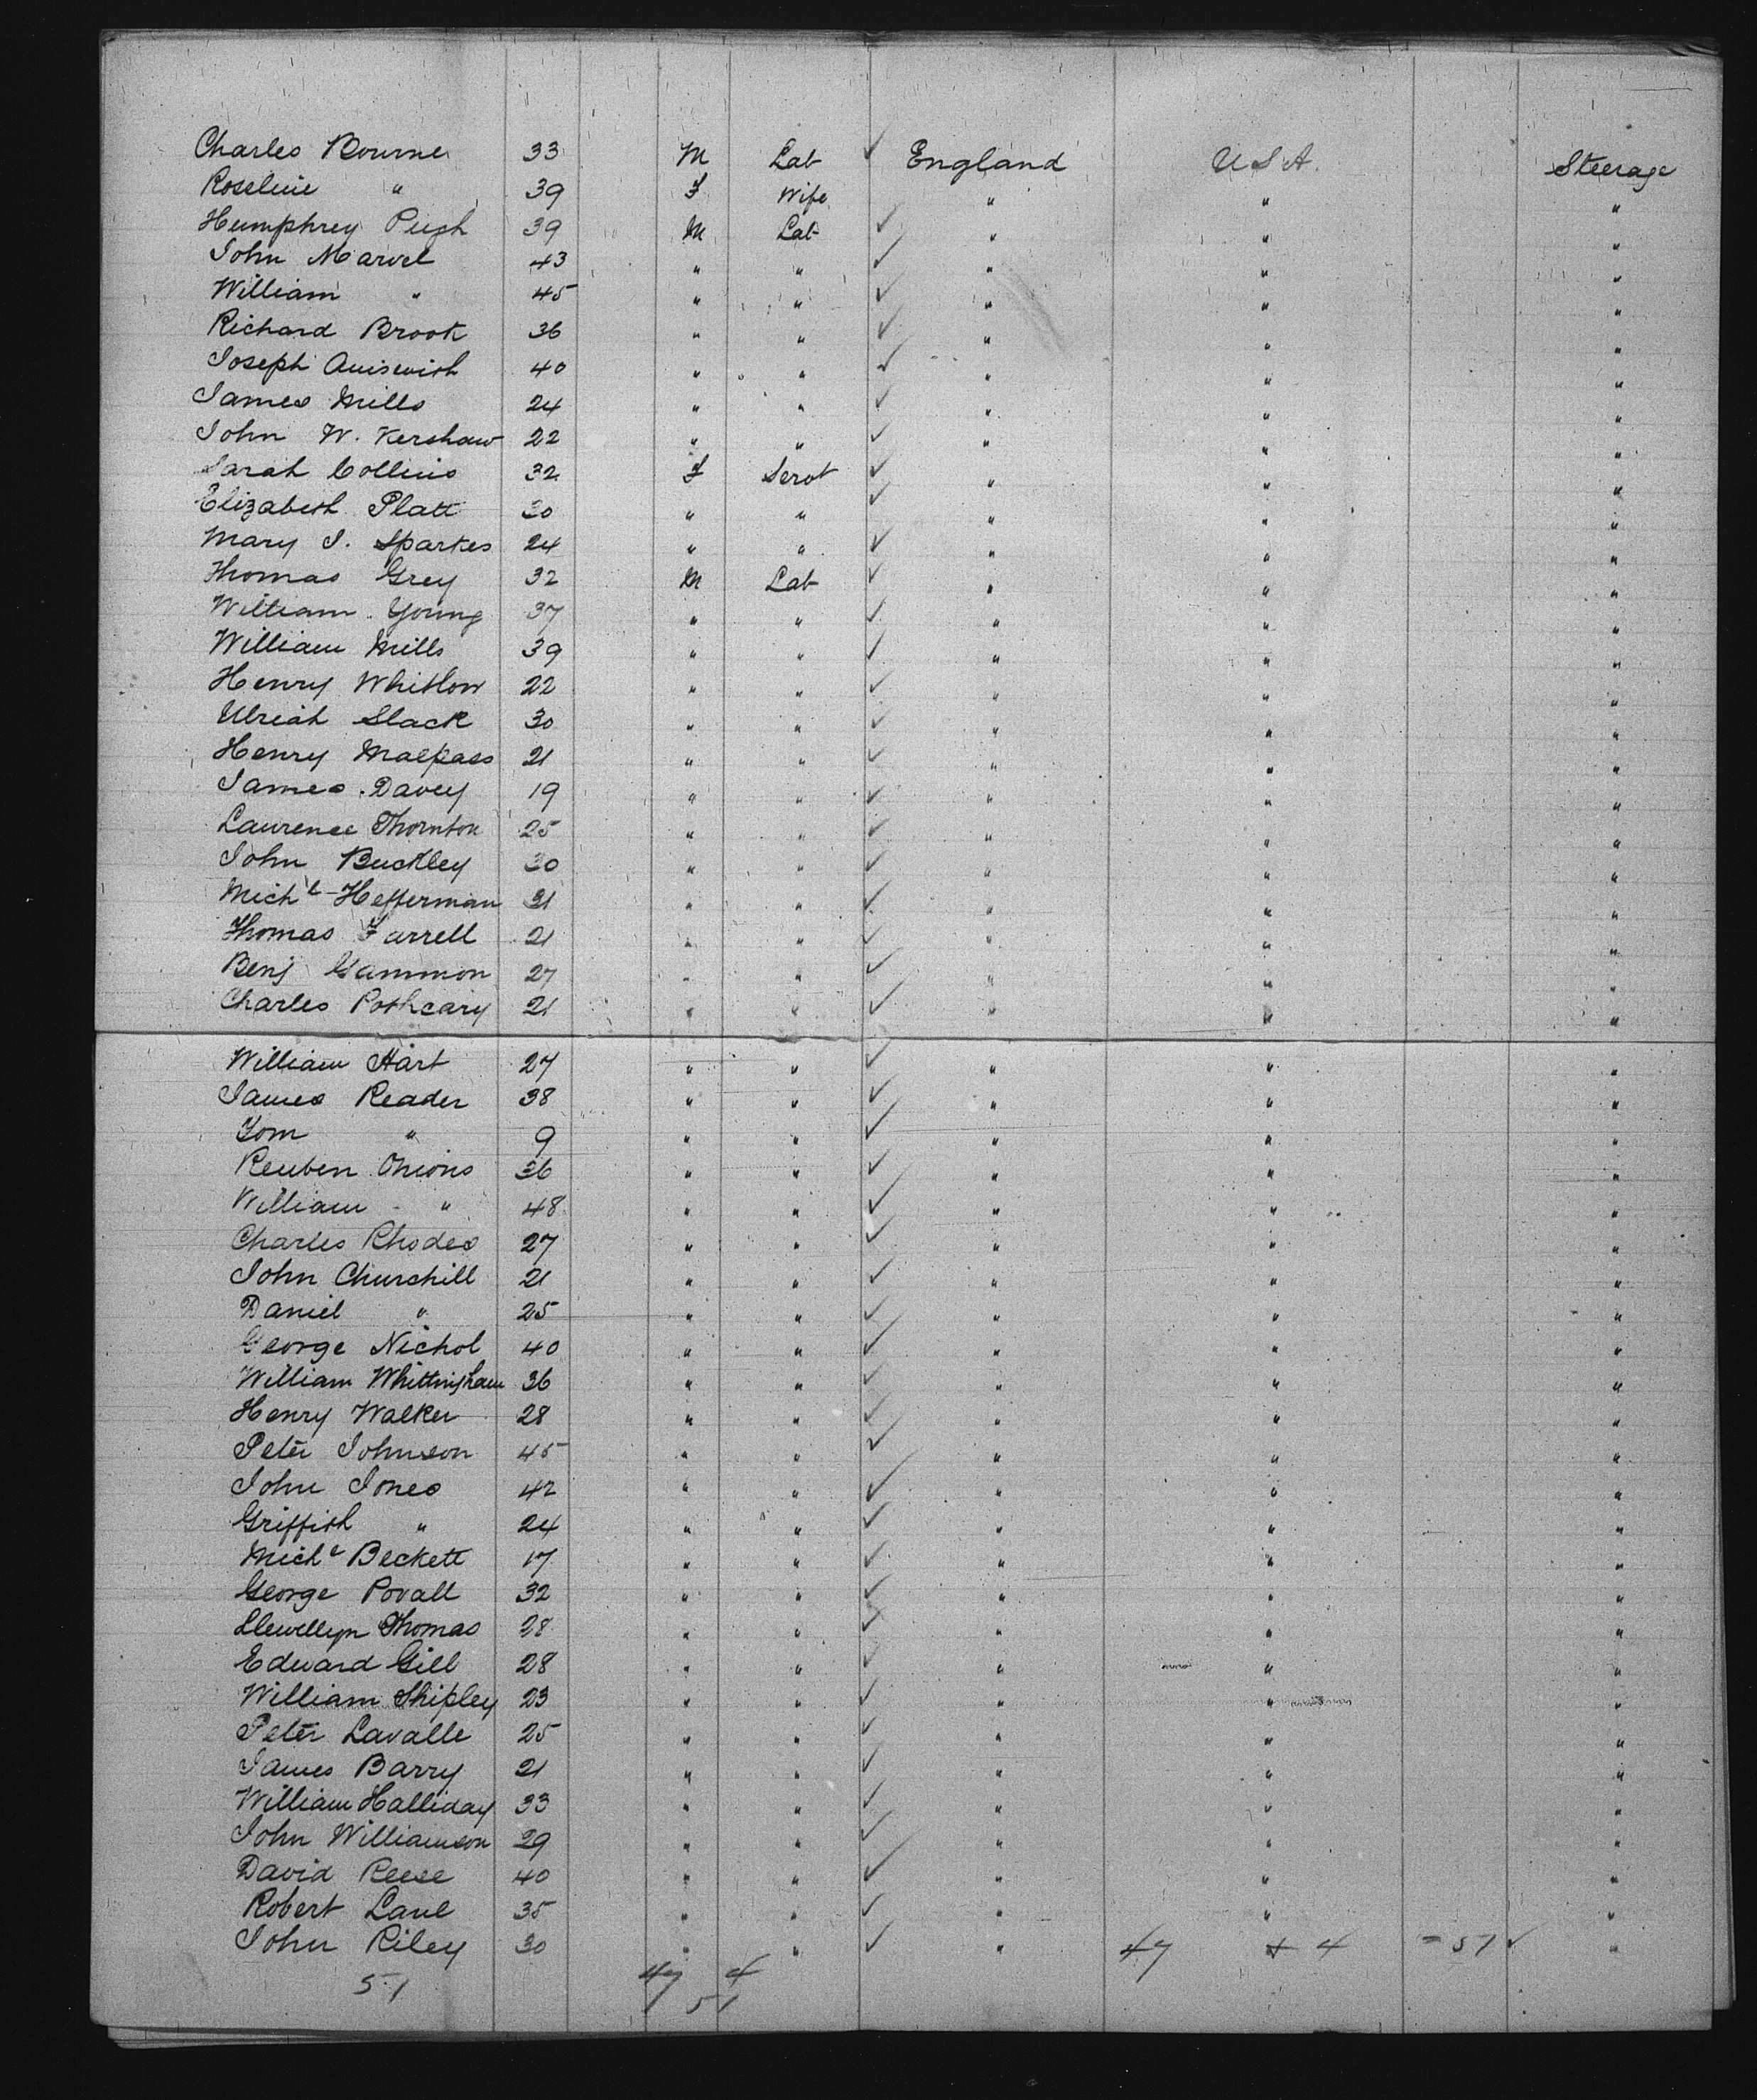 Charles Bourne 33 M Lab ✓ England U.S.A. Steerage
Roseline " 39 F Wife " " "
Humphrey Pugh 39 M Lab ✓ " " "
John Marvel 43 " " ✓ " " "
William " 45 " " ✓ " " "
Richard Brook 36 " " ✓ " " "
Joseph 40 " " ✓ " " "
James Mills 24 " " ✓ " " "
John W. Kershaw 22 " " ✓ " " "
Sarah Collins 32 F Servt ✓ " " "
Elizabeth Platt 30 " " ✓ " " "
Mary J. Sparkes 24 " " ✓ " " "
Thomas Grey 32 M Lab ✓ " " "
William Young 37 " " ✓ " " "
William Mills 39 " " ✓ " " "
Henry Whitlow 22 " " ✓ " " "
Uriah Slack 30 " " ✓ " " "
Henry Malpass 21 " " ✓ " " "
James Davey 19 " " ✓ " " "
Laurence Thornton 25 " " ✓ " " "
John Buckley 30 " " ✓ " " "
Michl Hefferman 21 " " ✓ " " "
Thomas Farrell 21 " " ✓ " " "
Benj Gammon 27 " " ✓ " " "
Charles Pothcary 21 " " ✓ " " "
William Hart 27 " " ✓ " " "
James Reader 38 " " ✓ " " "
Tom " 9 " " ✓ " " "
Reuben Onions 36 " " ✓ " " "
William " 48 " " ✓ " " "
Charles Rhodes 27 " " ✓ " " "
John Churchill 21 " " ✓ " " "
Daniel " 25 " " ✓ " " "
George Nichol 40 " " ✓ " " "
William Whittingham 36 " " ✓ " " "
Henry Walker 28 " " ✓ " " "
Peter Johnson 45 " " ✓ " " "
John Jones 42 " " ✓ " " "
Griffith " 24 " " ✓ " " "
Michl Beckett 17 " " ✓ " " "
George Povall 32 " " ✓ " " "
Llewellyn Thomas 28 " " ✓ " " "
Edward Gill 28 " " ✓ " " "
William Shipley 23 " " ✓ " " "
Peter Lavalle 25 " " ✓ " " "
James Barry 21 " " ✓ " " "
William Halliday 33 " " ✓ " " "
John Williamson 29 " " ✓ " " "
David Reese 40 " " ✓ " " "
Robert Lane 35 " " ✓ " " "
John Riley 30 " " ✓ " 47 + 4 = 51 ✓ "
51 47 4
51